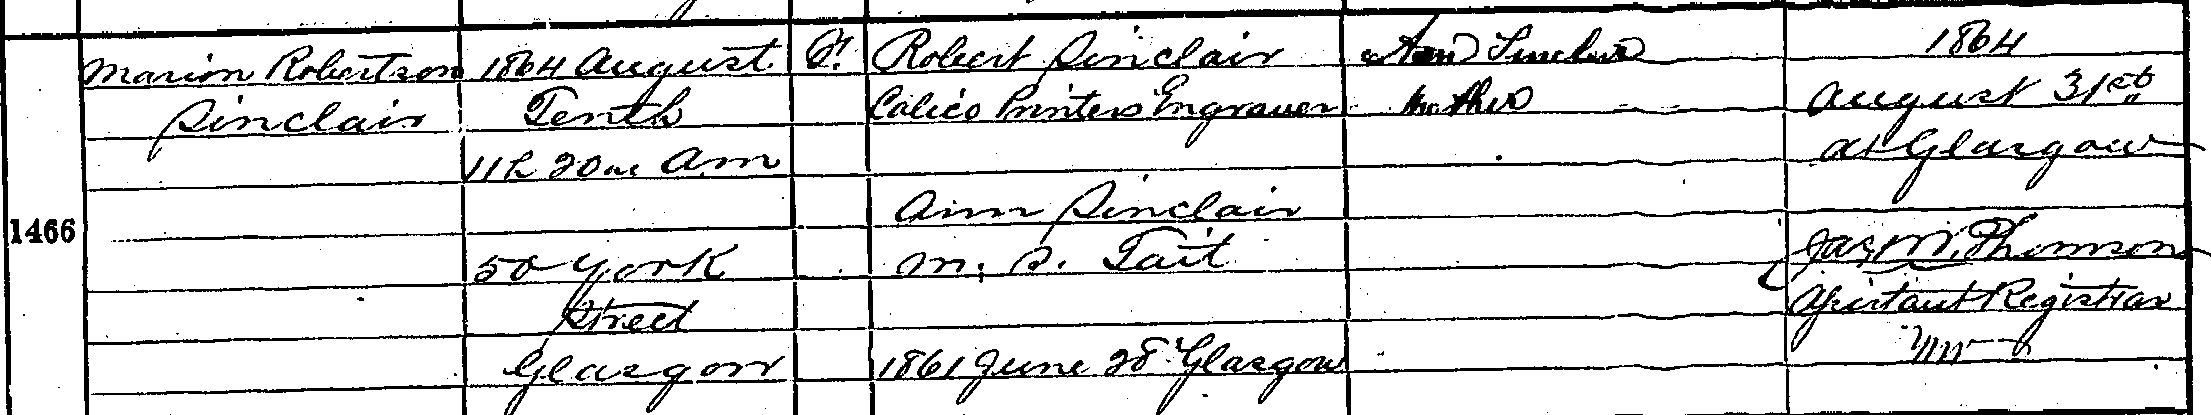 1466
Marion Robertson
Sinclair
1864 August
Tenth
11h 20m AM
50 York
Street
Glasgow
F.
Robert Sinclair
Calico Printers Engraver
Ann Sinclair
m. s. Tait
1861 June 28 Glasgow
Ann Sinclair
Mother
1864
August 31st
at Glasgow
Jas. M. Thomson
Assistant Registrar